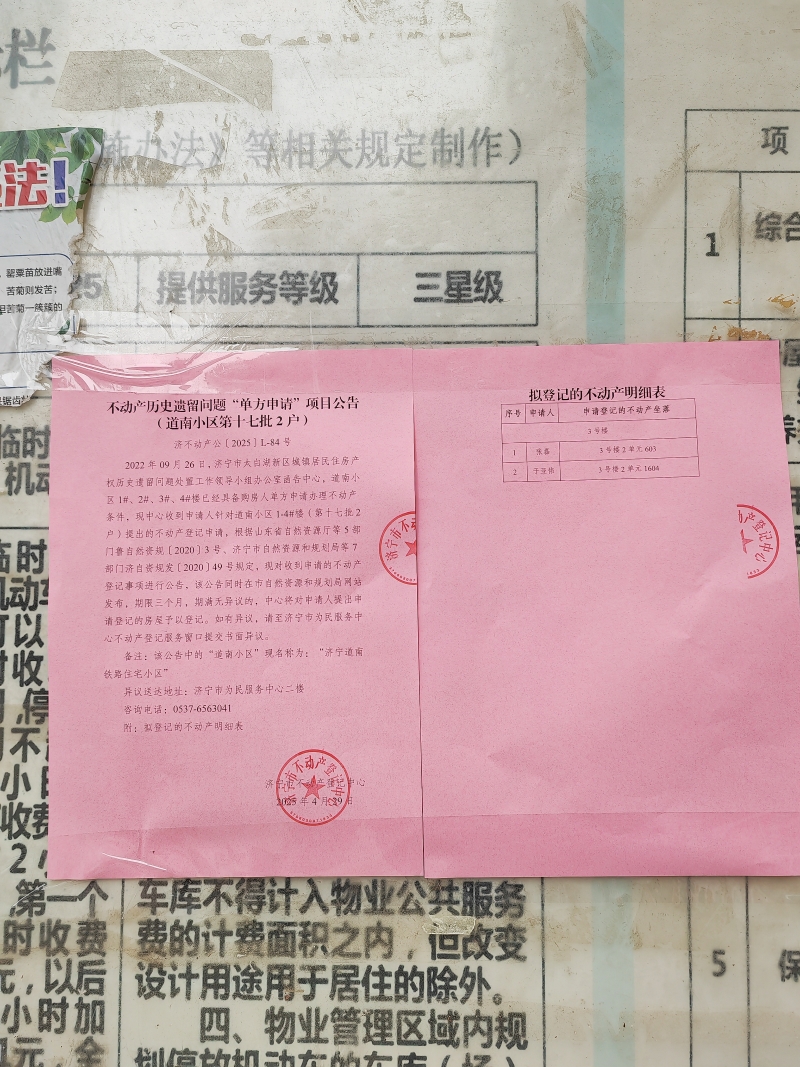 栏
施办法》等相关规定制作）
法!
罂粟苗放进嘴
苦菊则发苦；
苦菊一簇簇的
提供服务等级
三星级
项
1
综合
不动产历史遗留问题“单方申请”项目公告
（道南小区第十七批2户）
济不动产公〔2025〕L-84号
2022年09月26日，济宁市太白湖新区城镇居民住房产
权历史遗留问题处置工作领导小组办公室函告中心，道南小
区1#、2#、3#、4#楼已经具备购房人单方申请办理不动产
条件，现中心收到申请人针对道南小区1-4#楼（第十七批2
户）提出的不动产登记申请，根据山东省自然资源厅等5部
门鲁自然资规〔2020〕3号、济宁市自然资源和规划局等7
部门济自资规发〔2020〕49号规定，现对收到申请的不动产
登记事项进行公告，该公告同时在市自然资源和规划局网站
发布，期限三个月，期满无异议的，中心将对申请人提出申
请登记的房屋予以登记。如有异议，请至济宁市为民服务中
心不动产登记服务窗口提交书面异议。
备注：该公告中的“道南小区”现名称为：“济宁道南
铁路住宅小区”
异议送达地址：济宁市为民服务中心二楼
咨询电话：0537-6563041
附：拟登记的不动产明细表
济宁市不动产登记中心
2025年4月29日
拟登记的不动产明细表
序号 申请人 申请登记的不动产坐落
3号楼
1 张磊 3号楼2单元603
2 于亚伟 3号楼2单元1604
临时
机动
车库不得计入物业公共服务
费的计费面积之内，但改变
设计用途用于居住的除外。
四、物业管理区域内规
划停放机动车的车库（场）
第一个
时收费
元，以后
小时加
元，全
5
保